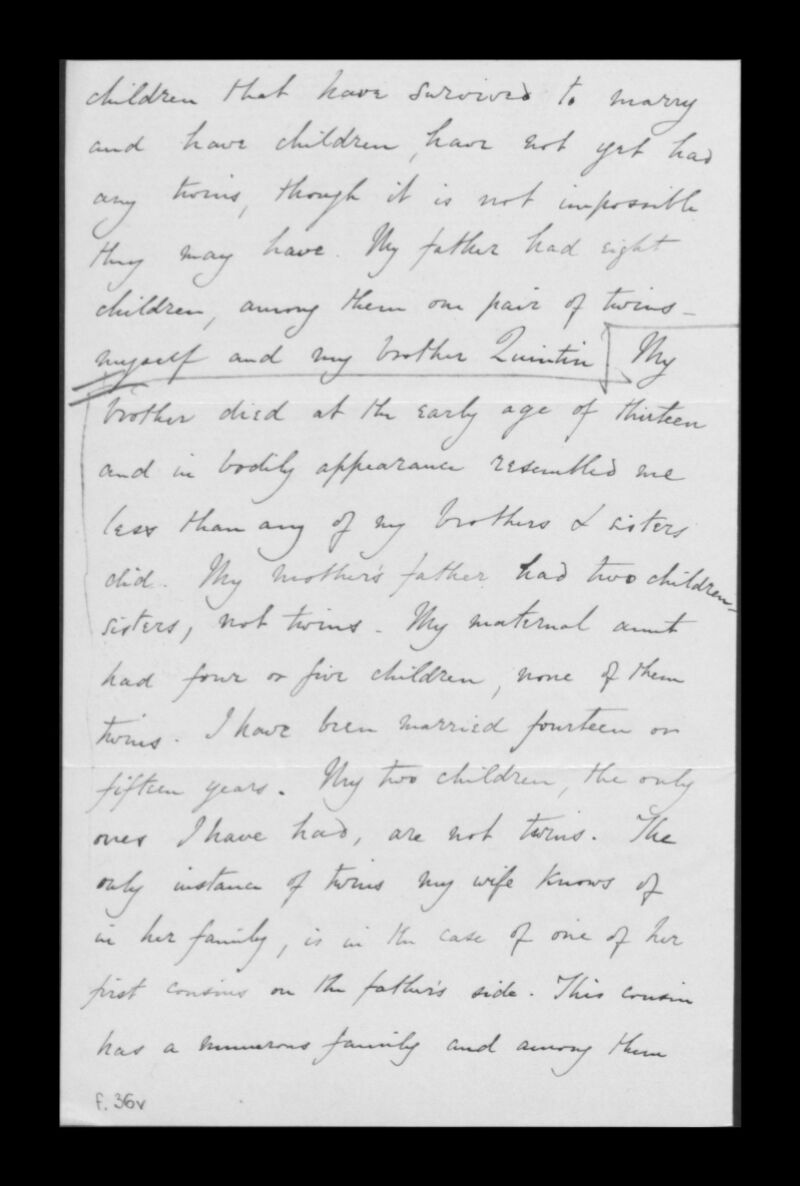 children that have survived to marry
and have children, have not yet had
any twins, though it is not impossible
they may have. My father had eight
children, among them one pair of twins -
myself and my brother Quintin My
brother died at the early age of thirteen
and in bodily appearance resembled me
less than any of my brothers & sisters
did. My mother's father had two children -
sisters, not twins. My maternal aunt
had four or five children, none of them
twins. I have been married fourteen or
fifteen years. My two children, the only
ones I have had, are not twins. The
only instance of twins my wife knows of
in her family, is in the case of one of her
first cousins on the father's side. This cousin
has a numerous family and among them
f. 36v